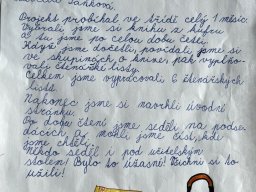 Projekt probíhal ve třídě celý 1 měsíc.
Vybrali jsme si knihu z kufru
a tu jsme po celou dobu četli.
Když jsme dočetli, povídali jsme si
ve skupinách o knize a pak vyplňo-
vali čtenářské listy.
Celkem jsme vypracovali 6 čtenářských
listů.
Nakonec jsme si navrhli úvodní
stránku.
Po dobu čtení jsme seděli na podse-
dácích, a mohli jsme číst, kde
jsme chtěli.
někdo seděl i pod učitelským
stolem! Bylo to úžasné! Všichni si to
užili!